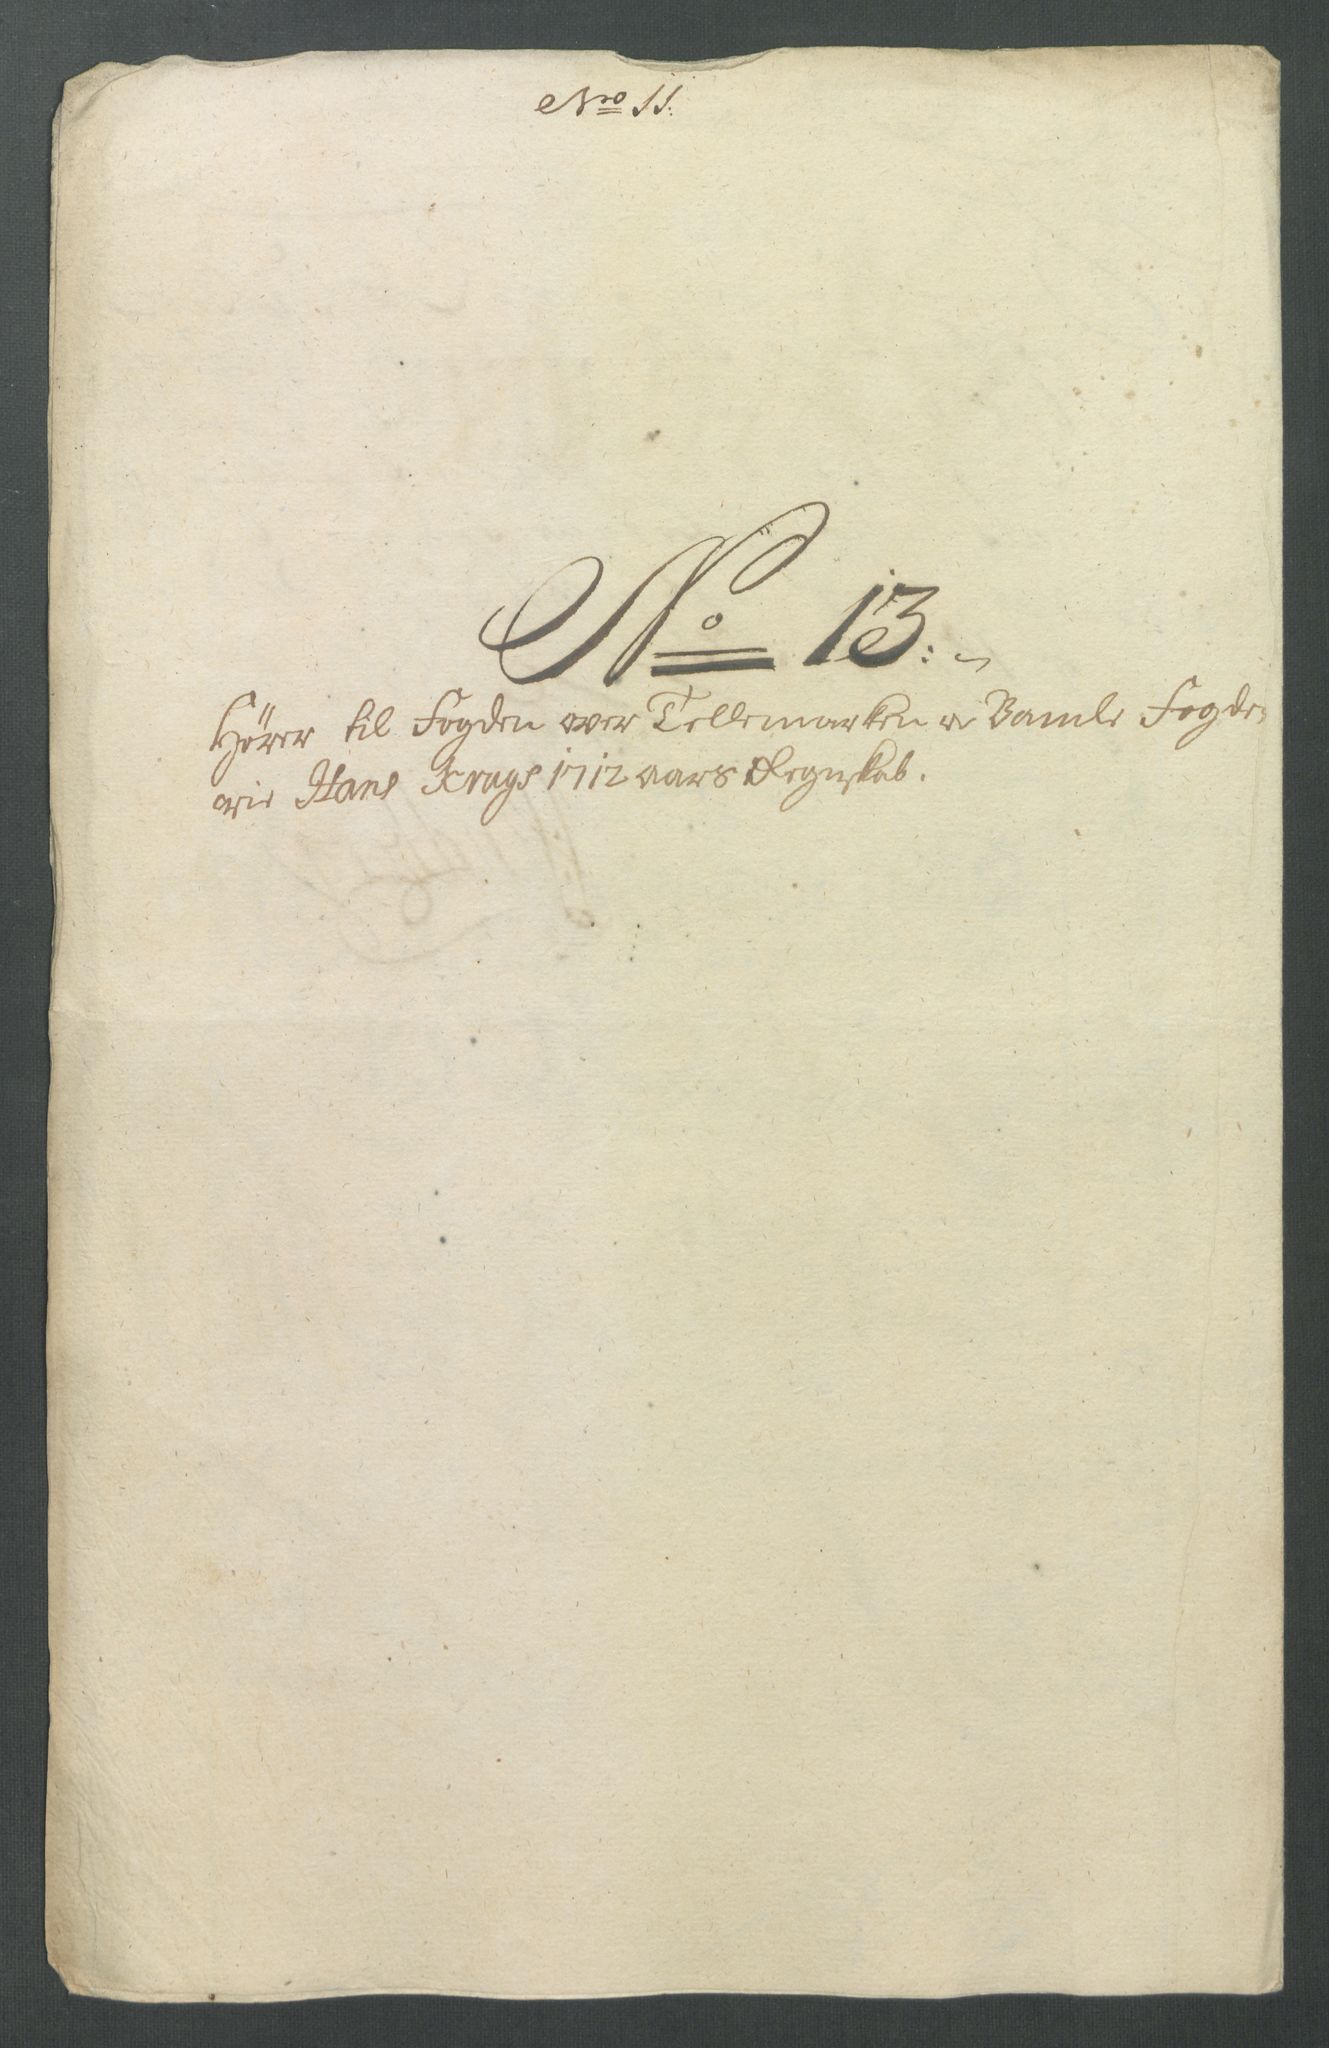 Nro 11.
No 13:
Hörer til Fogden over Tellemarken oc Bamle Fogde-
rie Hans Krags 1712 aars Regnskab.